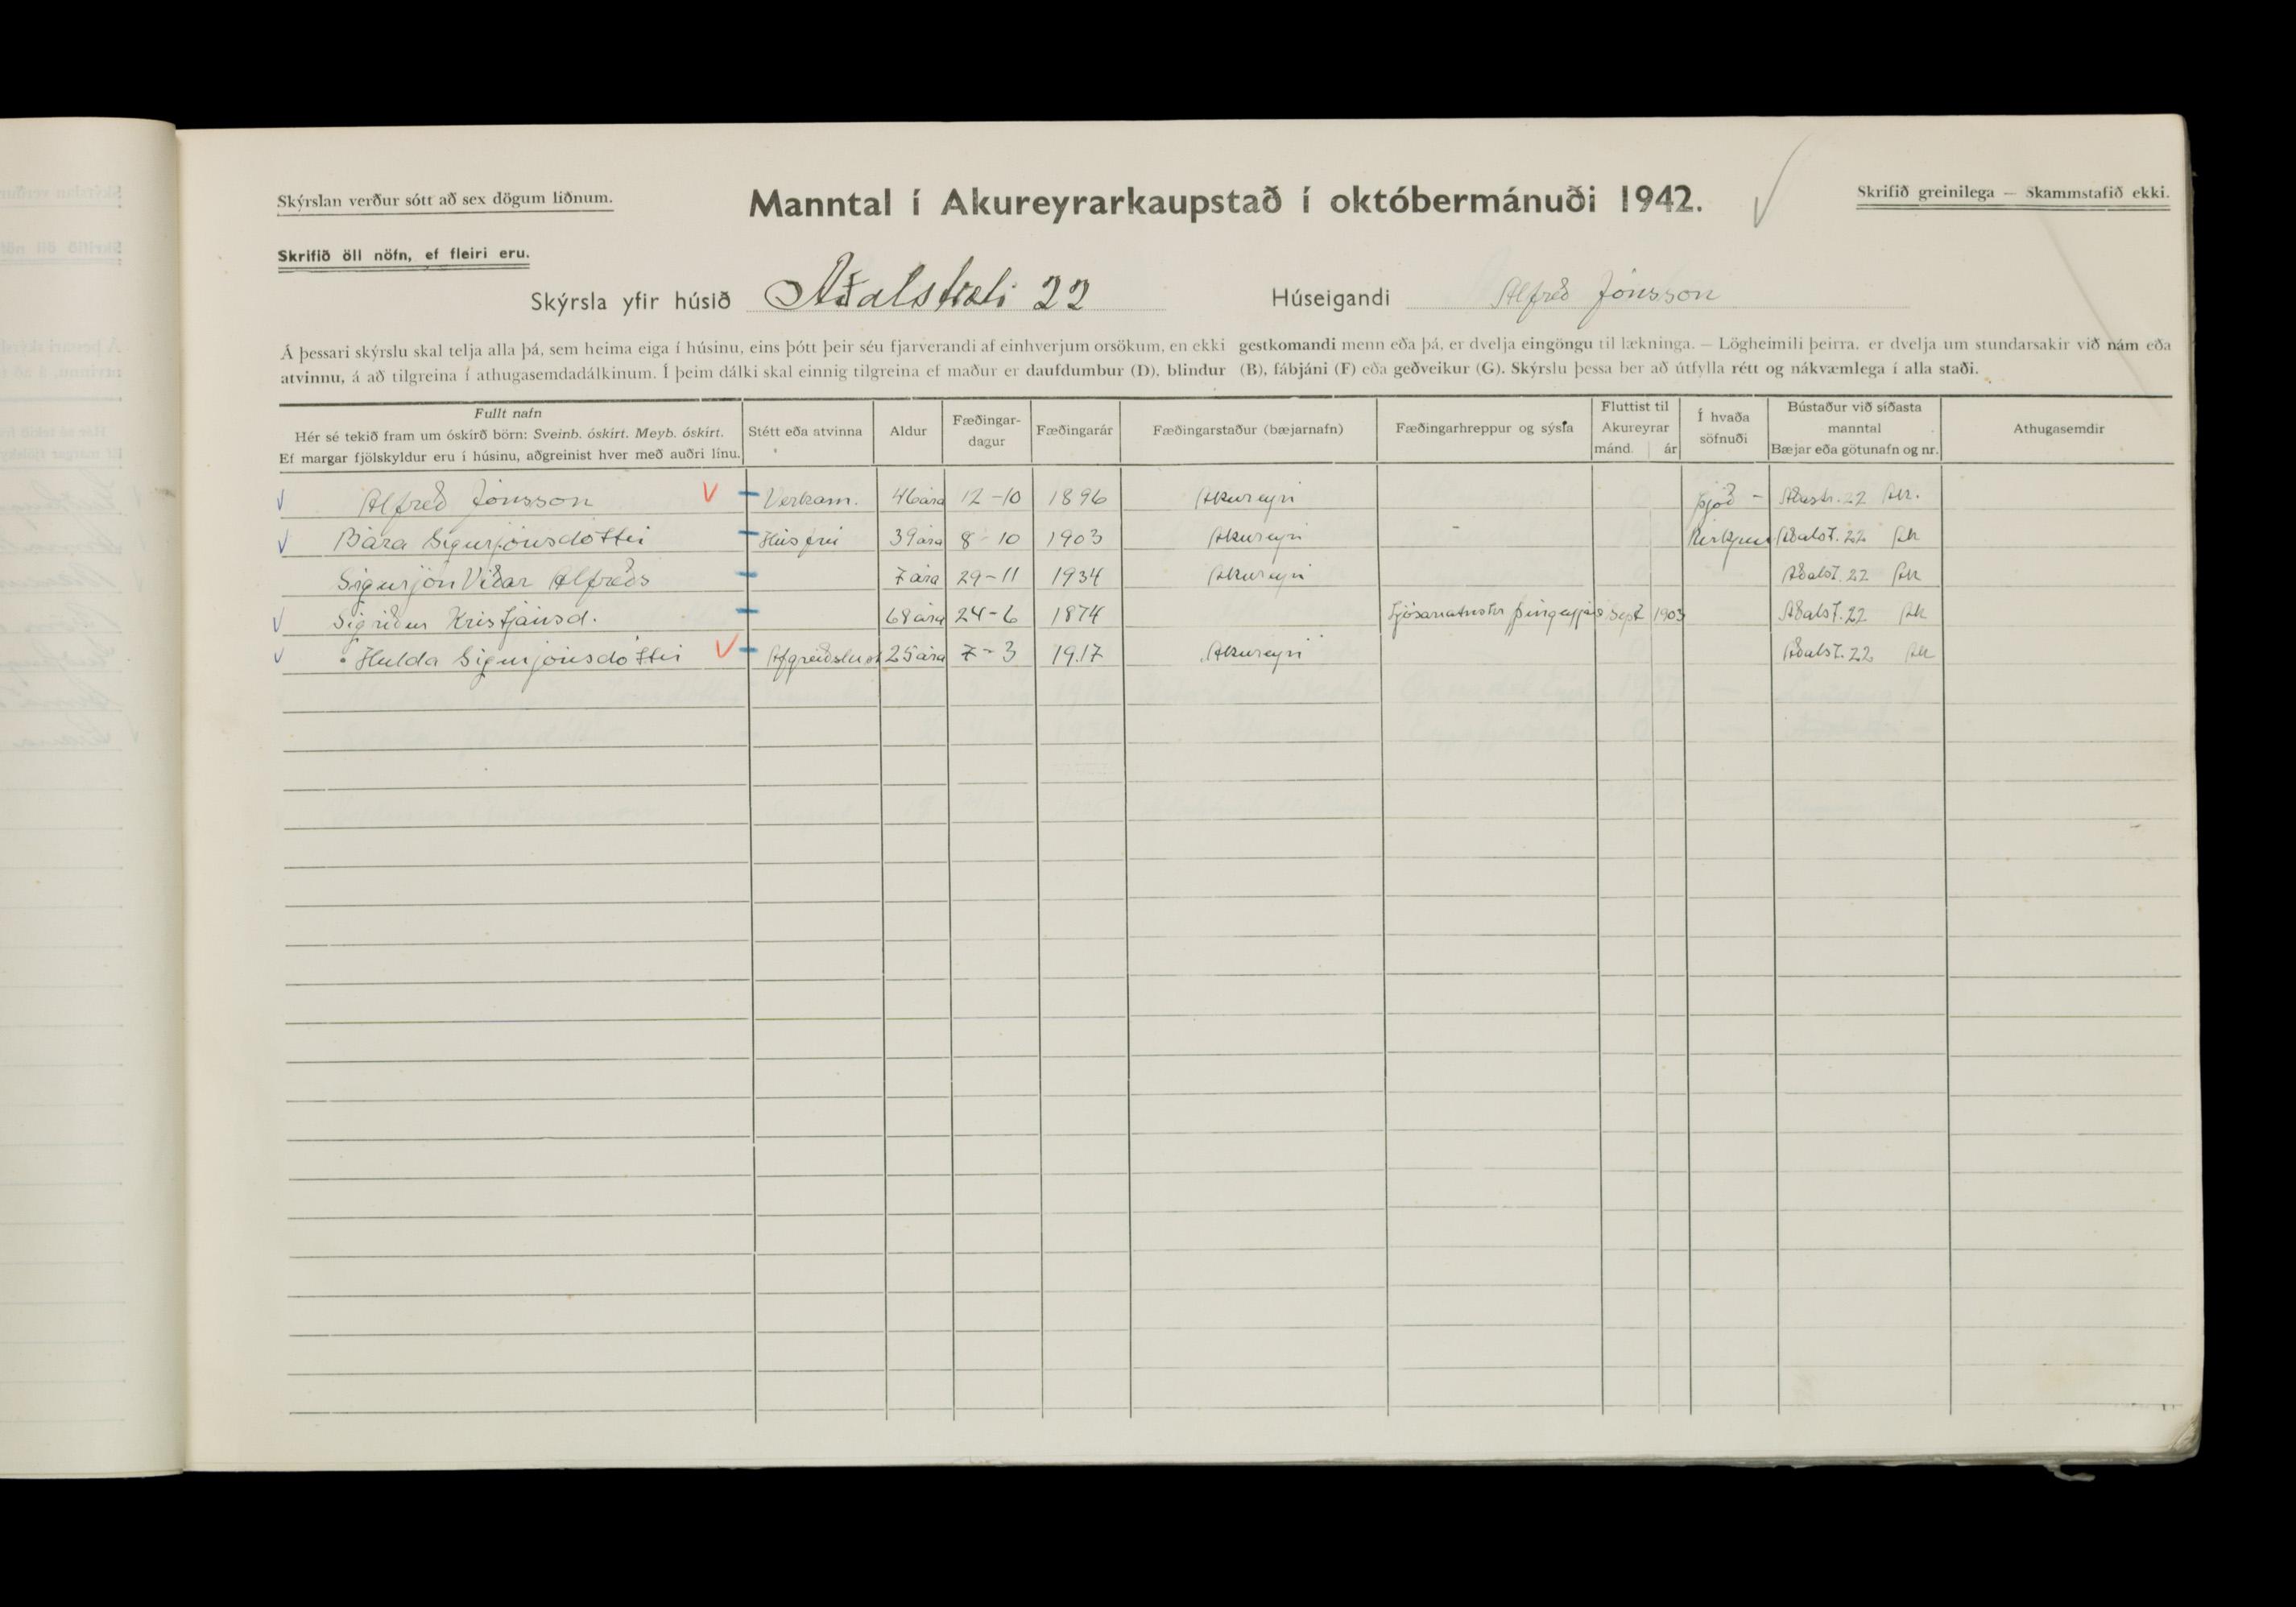 Skýrslan verður sótt að sex dögum liðnum.
Manntal í Akureyrarkaupstað í októbermánuði 1942.
Skrifið greinilega — Skammstafið ekki.
Skrifið öll nöfn, ef fleiri eru.
Skýrsla yfir húsið Aðalstræti 22 Húseigandi Alfreð Jónsson
Á þessari skýrslu skal telja alla þá, sem heima eiga í húsinu, eins þótt þeir séu fjarverandi af einhverjum orsökum, en ekki gestkomandi menn eða þá, er dvelja eingöngu til lækninga. — Lögheimili þeirra, er dvelja um stundarsakir við nám eða
atvinnu, á að tilgreina í athugasemdadálkinum. Í þeim dálki skal einnig tilgreina ef maður er daufdumbur (D), blindur (B), fábjáni (F) eða geðveikur (G). Skýrslu þessa ber að útfylla rétt og nákvæmlega í alla staði.
Fullt nafn
Hér sé tekið fram um óskírð börn: Sveinb. óskírt. Meyb. óskírt.
Ef margar fjölskyldur eru í húsinu, aðgreinist hver með auðri línu.
Stétt eða atvinna
Aldur
Fæðingar-
dagur
Fæðingarár
Fæðingarstaður (bæjarnafn)
Fæðingarhreppur og sýsla
Fluttist til
Akureyrar
mánd. ár
Í hvaða
söfnuði
Bústaður við síðasta
manntal
Bæjar eða götunafn og nr.
Athugasemdir
Alfreð Jónsson Verkam. 46 ára 12-10 1896 Akureyri Þjóð- Aðastr. 22 Ak.
Bára Sigurjónsdóttir Húsfrú 39 ára 8-10 1903 Akureyri Kirkjun Aðalst. 22 Ak
Sigurjón Viðar Alfreðs 7 ára 29-11 1934 Akureyri Aðalst. 22 Ak
Sigríður Kristjánsd. 68 ára 24-6 1874 Sept 1903 Aðalst. 22 Ak
Hulda Sigurjónsdóttir Afgreiðslust 25 ára 7-3 1917 Akureyri Aðalst. 22 Ak